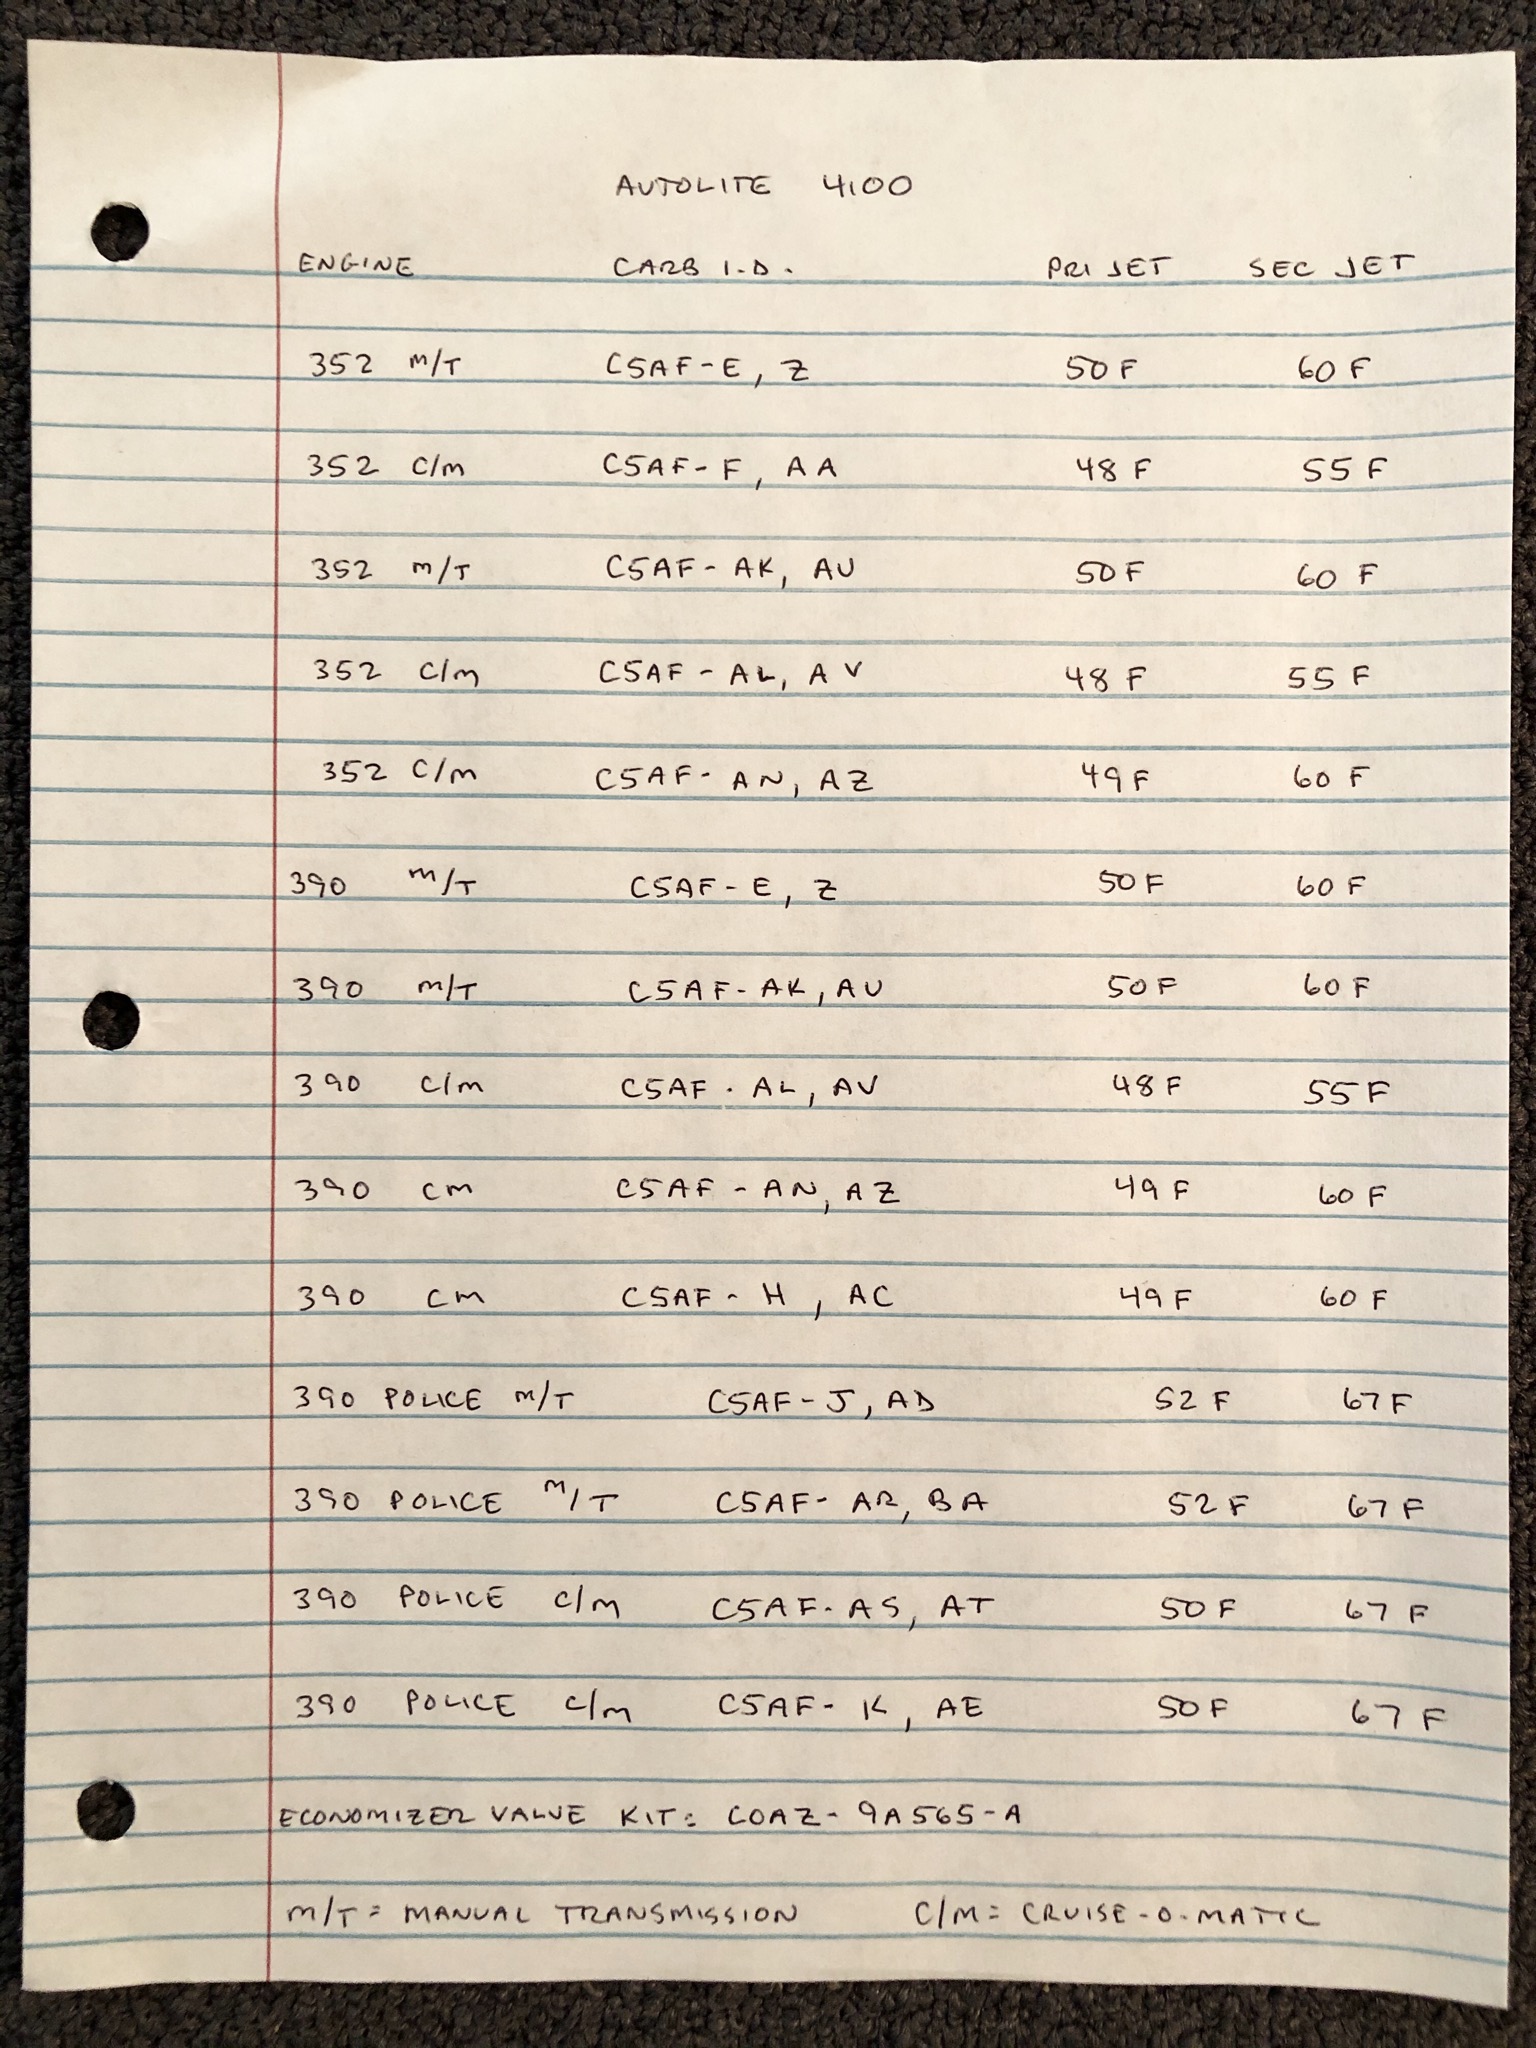 AUTOLITE 4100
ENGINE CARB I.D. PRI JET SEC JET
352 M/T C5AF-E, Z 50F 60F
352 C/M C5AF-F, AA 48F 55F
352 M/T C5AF-AK, AU 50F 60F
352 C/M C5AF-AL, AV 48F 55F
352 C/M C5AF-AN, AZ 49F 60F
390 M/T C5AF-E, Z 50F 60F
390 M/T C5AF-AK, AU 50F 60F
390 C/M C5AF-AL, AV 48F 55F
390 CM C5AF-AN, AZ 49F 60F
390 CM C5AF-H, AC 49F 60F
390 POLICE M/T C5AF-J, AD 52F 67F
390 POLICE M/T C5AF-AR, BA 52F 67F
390 POLICE C/M C5AF-AS, AT 50F 67F
390 POLICE C/M C5AF-K, AE 50F 67F
ECONOMIZER VALVE KIT: COAZ-9A565-A
M/T = MANUAL TRANSMISSION C/M = CRUISE-O-MATIC